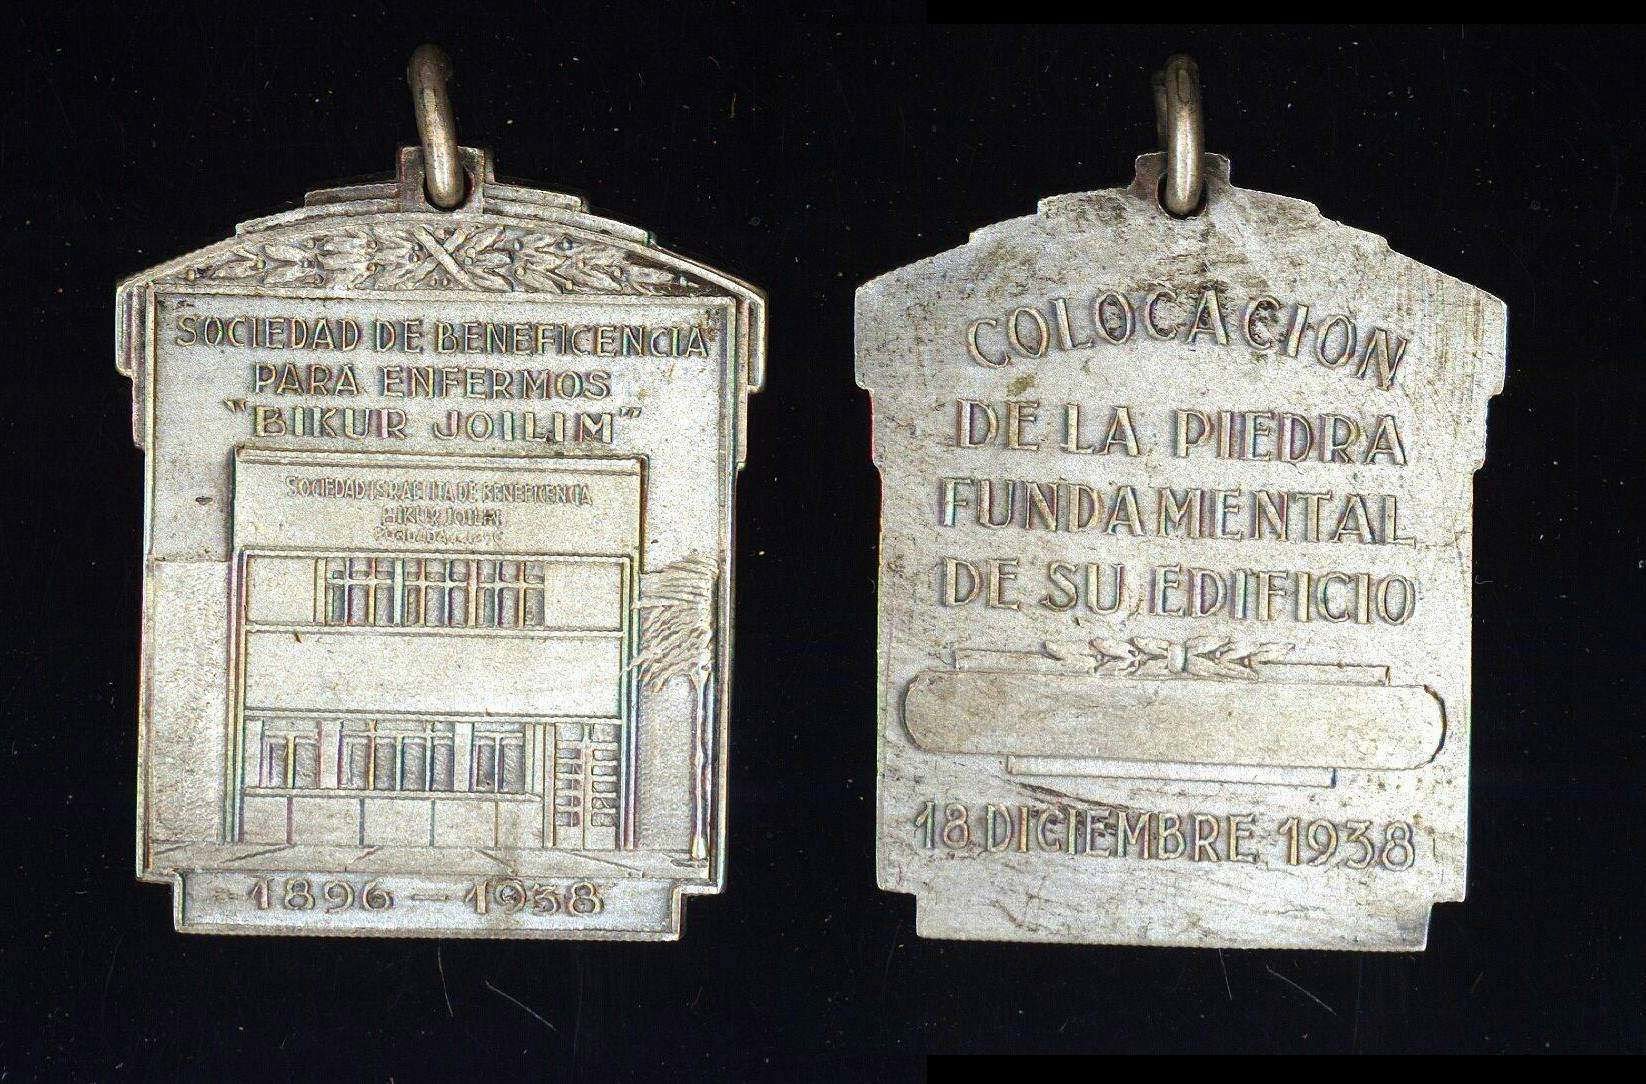 SOCIEDAD DE BENEFICENCIA
PARA ENFERMOS
"BIKUR JOILIM"
SOCIEDAD ISRAELITA DE BENEFICENCIA
BIKUR JOILIM
FUNDADA
1896 - 1938
COLOCACIÓN
DE LA PIEDRA
FUNDAMENTAL
DE SU EDIFICIO
18 DICIEMBRE 1938